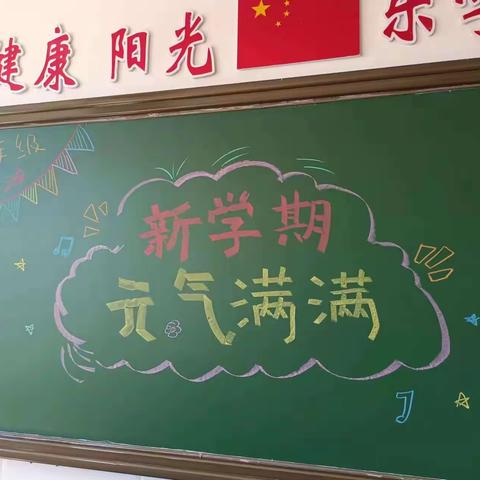 健康 阳光 乐学
年级
新学期
元气满满